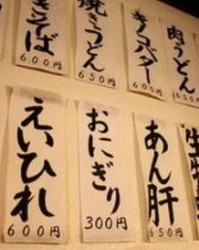 肉うどん
キノコバター
焼きうどん
650円
きそば
600円
あん肝
650円
おにぎり
300円
えいひれ
600円